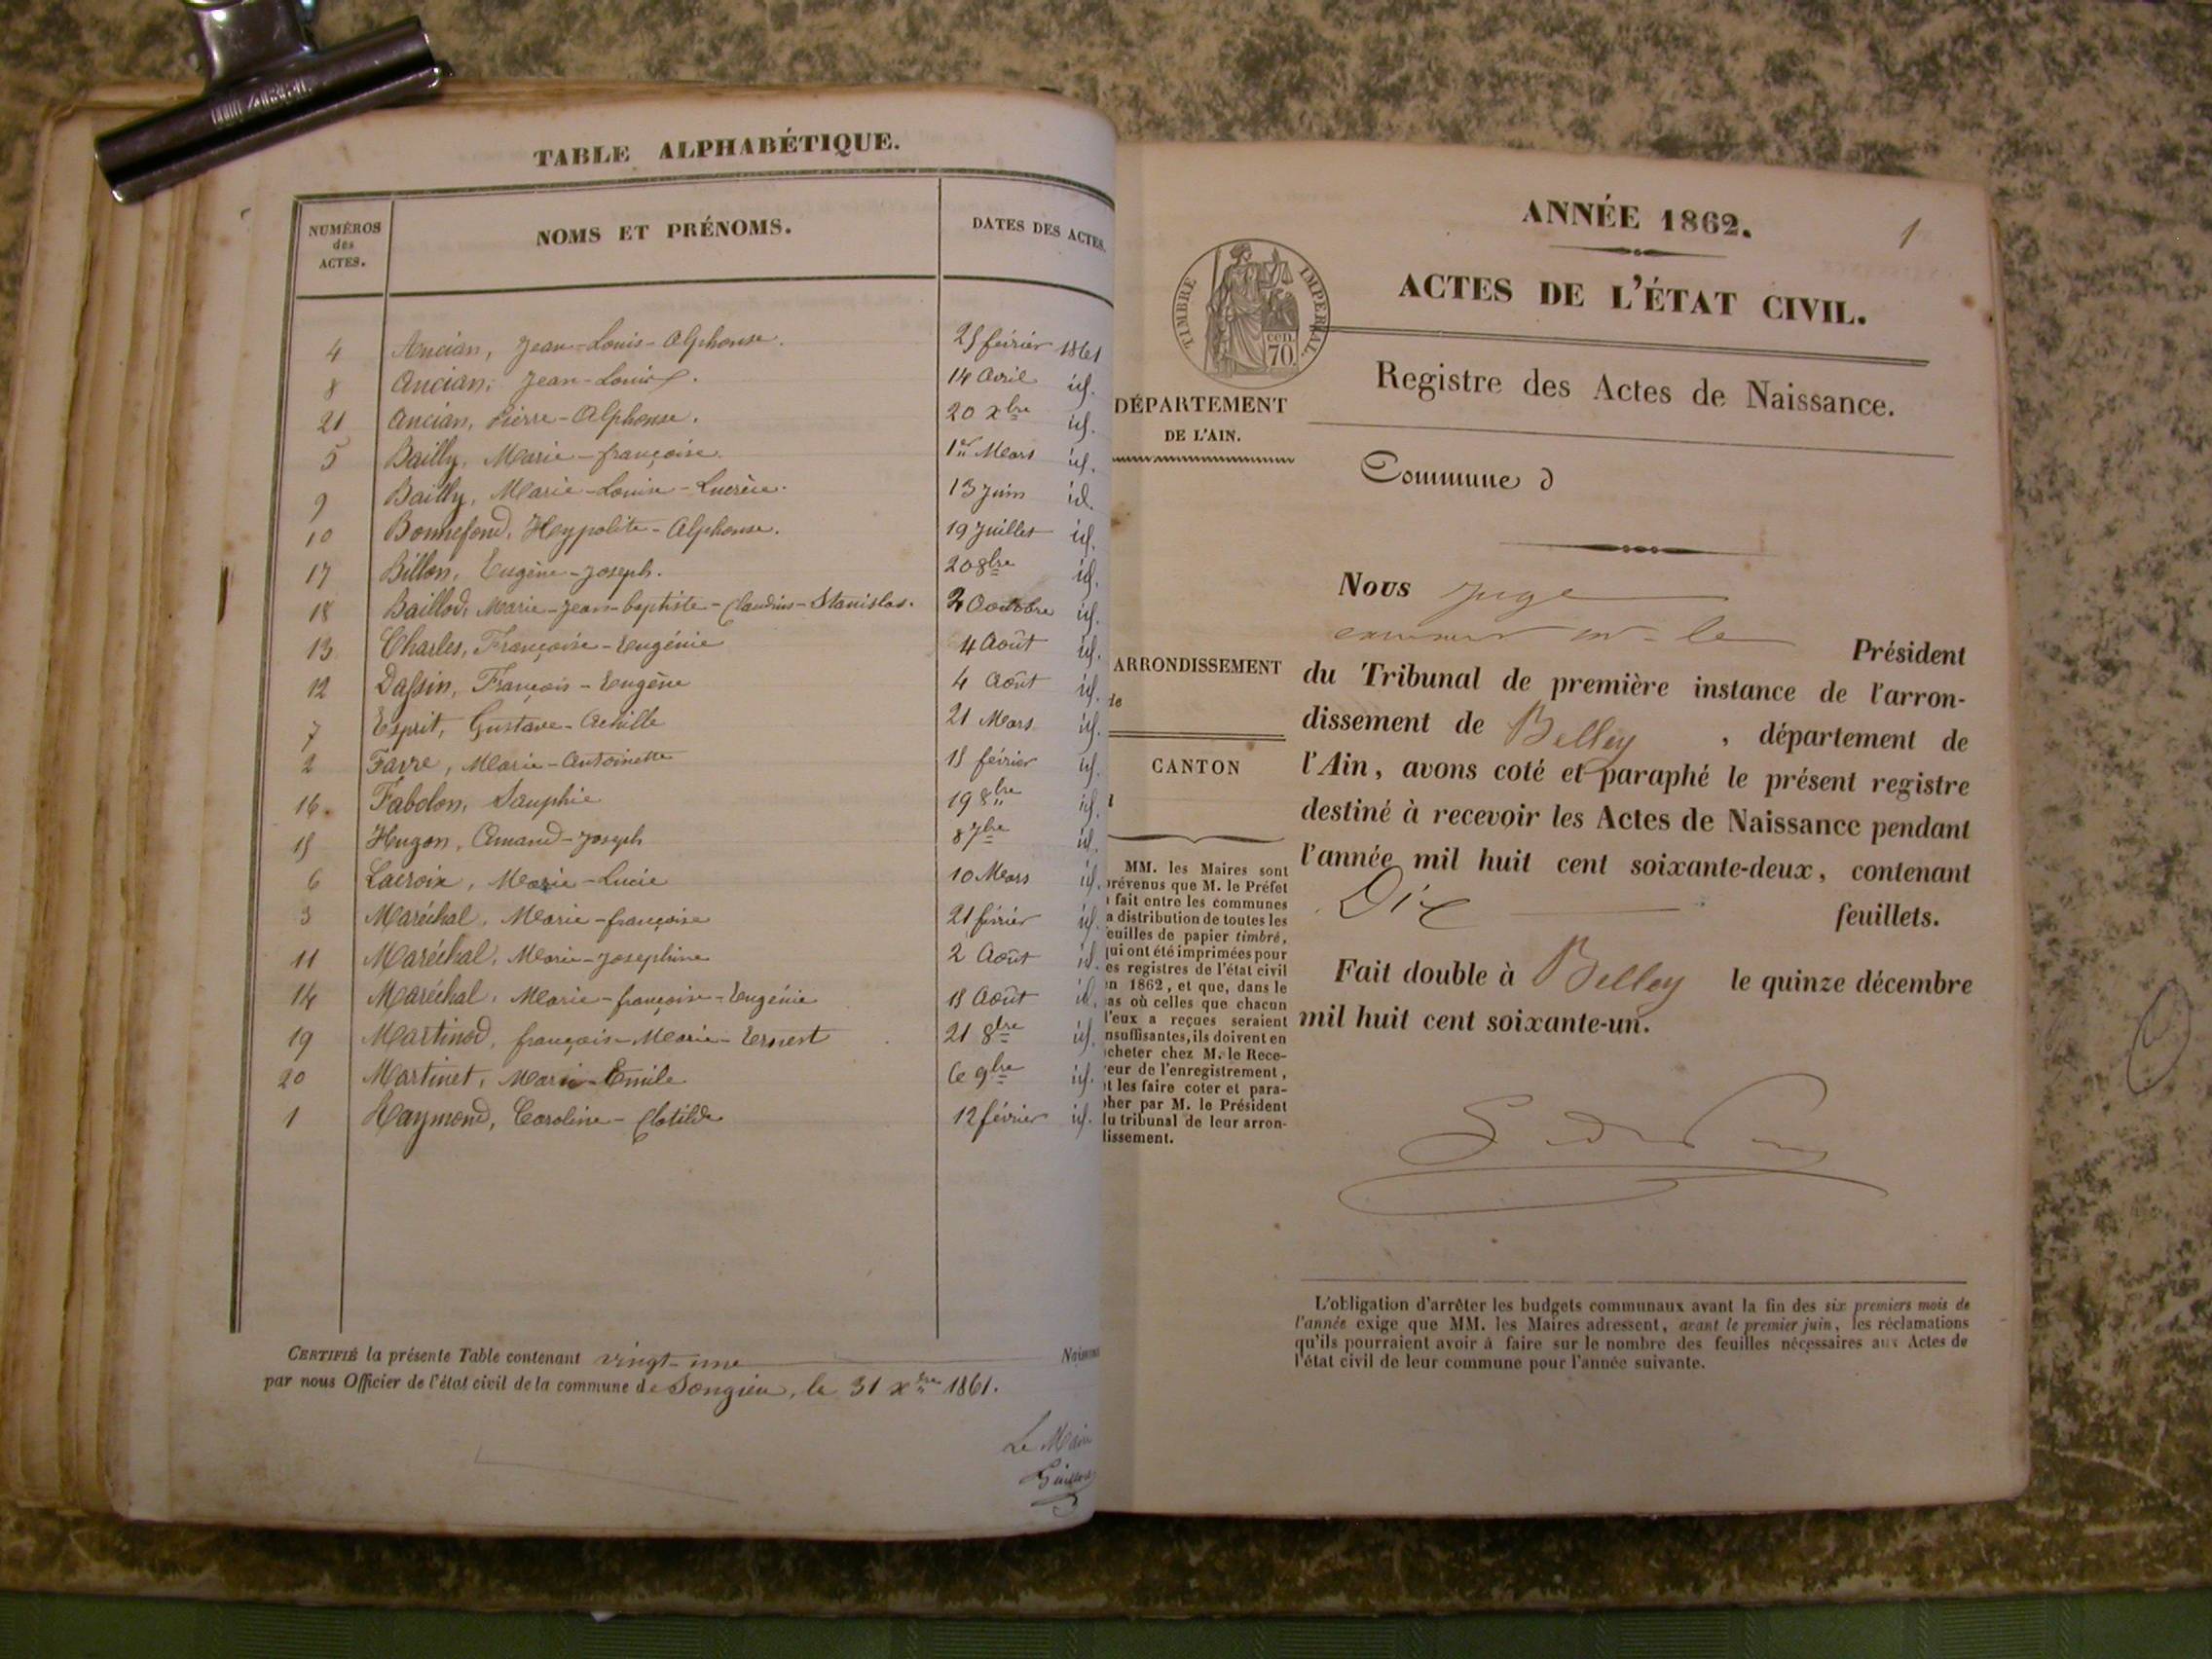 TABLE ALPHABÉTIQUE.
NUMÉROS
des
ACTES.
NOMS ET PRÉNOMS.
DATES DES ACTES.
4 Ancian, Jean-Louis-Alphonse. 25 février 1861
8 Ancian, Jean-Louis. 14 Avril id.
21 Ancian, Pierre-Alphonse. 20 xbre id.
5 Bailly, Marie-françoise. 1er Mars id.
9 Bailly, Marie-Louise-Lucrèce. 13 Juin id.
10 Bonnefond, Heypolite-Alphonse. 19 Juillet id.
17 Billon, Eugène-Joseph. 20 8bre id.
18 Baillod, Marie-Jean-baptiste-Claudius-Stanislas. 2 Octobre id.
13 Charles, Françoise-Eugénie 4 Août id.
12 Dassin, François-Eugène 4 Août id.
7 Esprit, Gustave-Achille 21 Mars id.
2 Favre, Marie-Antoinette 15 février id.
16. Fabolon, Sauphie 19 8bre id.
15 Hugon, Amand-Joseph 8 7bre id.
6 Lacroix, Marie-Lucie 10 Mars id.
3 Maréchal, Marie-françoise 21 février id.
11 Maréchal, Marie-Josephine 2 Août id.
14 Maréchal, Marie-françoise-Eugénie 15 Août id.
19 Martinod, françois-Marie-Ernest 21 8bre id.
20 Martinet, Marie-Emile 6 9bre id.
1 Raymond, Caroline-Clotilde 12 février id.
CERTIFIÉ la présente Table contenant vingt-une
par nous Officier de l'état civil de la commune de Songieu, le 31 xbre 1861.
Le Maire
ANNÉE 1862.
1
ACTES DE L'ÉTAT CIVIL.
TIMBRE IMPÉRIAL.
cen.
70.
Registre des Actes de Naissance.
DÉPARTEMENT
DE L'AIN.
Commune d
ARRONDISSEMENT
de
CANTON
MM. les Maires sont
prévenus que M. le Préfet
a fait entre les communes
la distribution de toutes les
feuilles de papier timbré,
qui ont été imprimées pour
les registres de l'état civil
en 1862, et que, dans le
cas où celles que chacun
d'eux a reçues seraient
insuffisantes, ils doivent en
acheter chez M. le Rece-
veur de l'enregistrement,
et les faire coter et para-
pher par M. le Président
du tribunal de leur arron-
dissement.
Nous Juge
le Président
du Tribunal de première instance de l'arron-
dissement de Belley, département de
l'Ain, avons coté et paraphé le présent registre
destiné à recevoir les Actes de Naissance pendant
l'année mil huit cent soixante-deux, contenant
Dix feuillets.
Fait double à Belley le quinze décembre
mil huit cent soixante-un.
L'obligation d'arrêter les budgets communaux avant la fin des six premiers mois de
l'année exige que MM. les Maires adressent, avant le premier juin, les réclamations
qu'ils pourraient avoir à faire sur le nombre des feuilles nécessaires aux Actes de
l'état civil de leur commune pour l'année suivante.